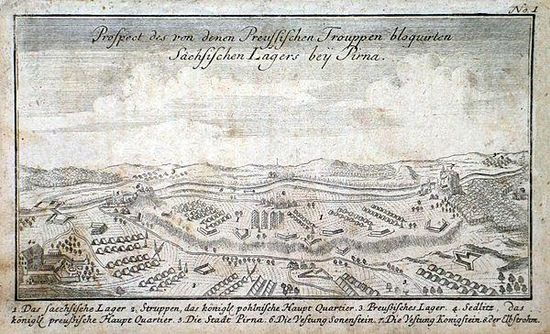 No. 1
Prospect des von denen Preussischen Trouppen bloquirten
Sächsischen Lagers beÿ Pirna.
1. Das saechsische Lager. 2. Struppen, das königl. pohlnische Haupt Quartier. 3. Preußisches Lager. 4. Sedlitz, das
königl. preussische Haupt Quartier. 5. Die Stadt Pirna. 6. Die Vestung Sonenstein. 7. Die Vestung Königstein. 8. der Elbstrohm.